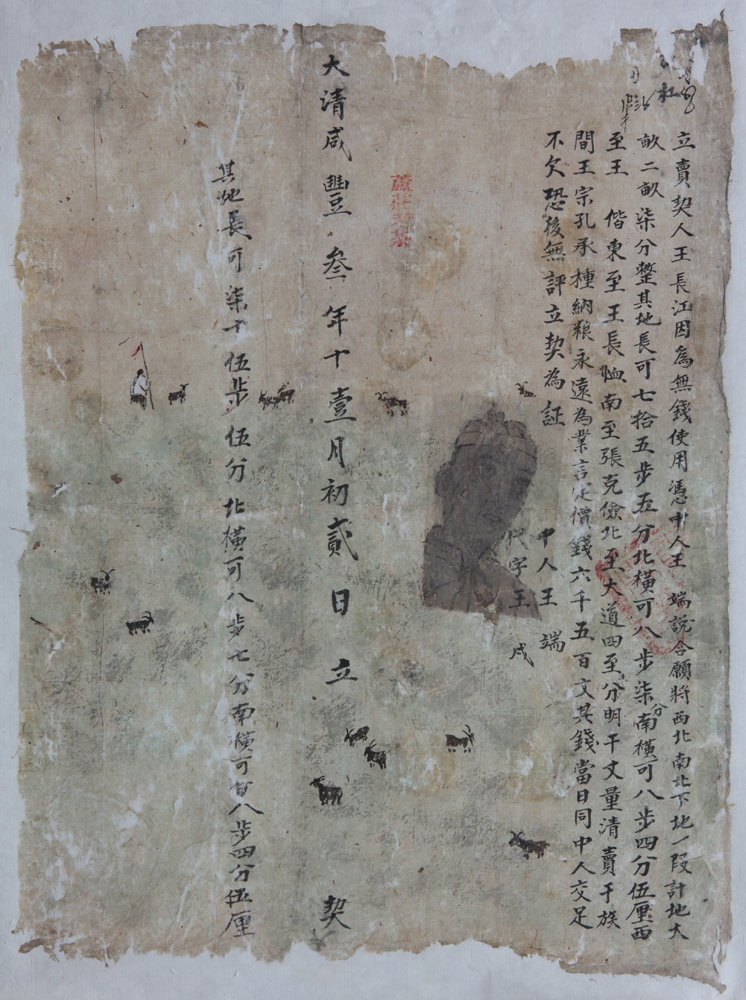 立賣契人王長江因為無錢使用憑中人王 端說合願將西北南北下地一段計地大
畝二畝柒分整其地長可七拾五步五分北橫可八步柒分南橫可八步四分伍厘西
至王 偕東至王長恤南至張克儉北至大道四至分明干丈量清賣干族
間王宗孔承種納粮永遠為業言定價錢六千五百文其錢當日同中人交足
不欠恐後無評立契為証
中人王 端
代字王 戌
大清咸豐叁年十壹月初貳日立 契
其地長可柒十伍步伍分北橫可八步七分南橫可八步四分伍厘